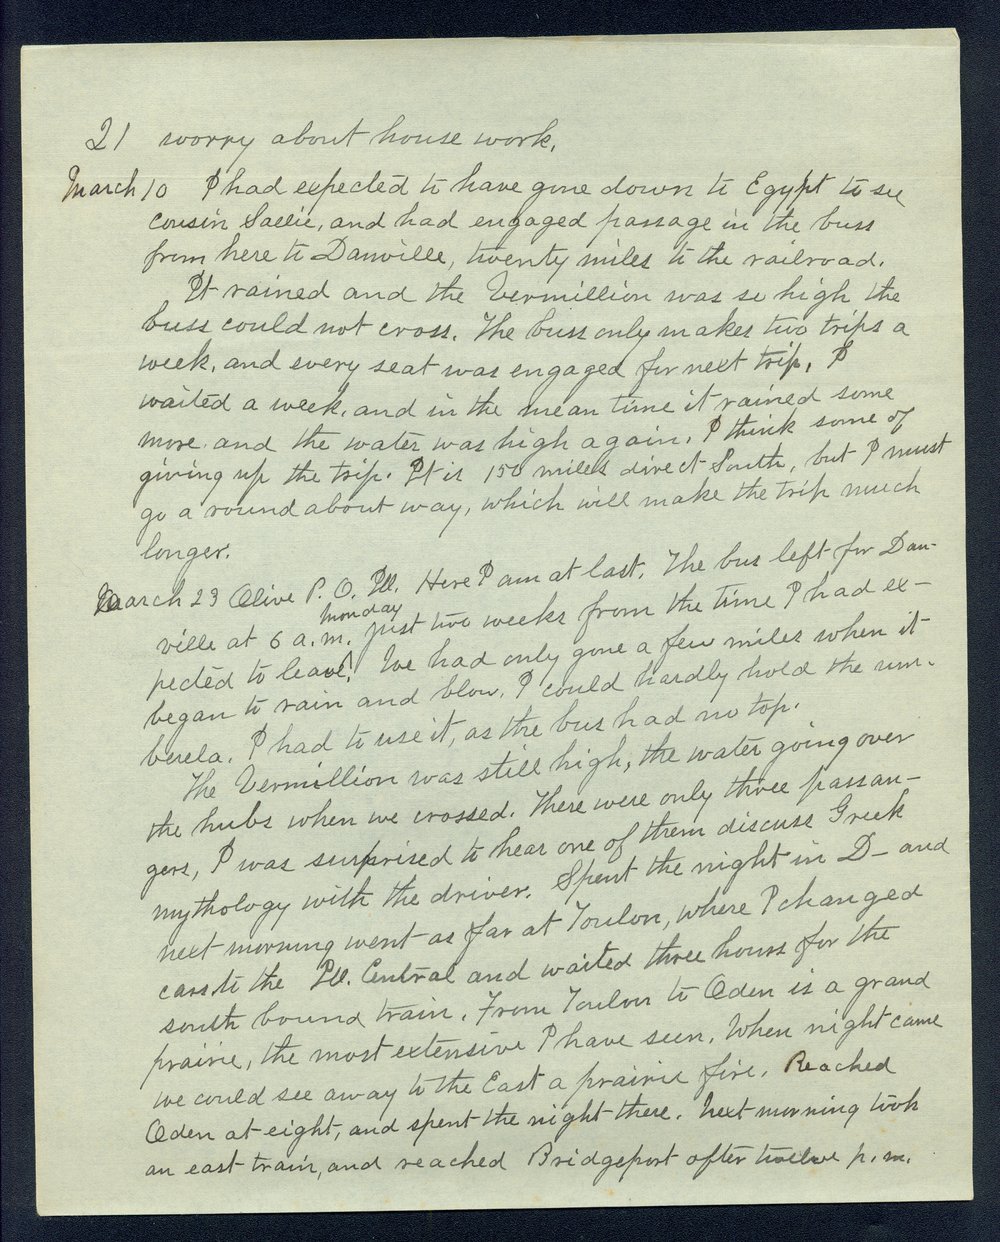 21 worry about house work.
March 10 I had expected to have gone down to Egypt to see
cousin Sallie, and had engaged passage in the buss
from here to Danville, twenty miles to the railroad.
It rained and the Vermillion was so high the
buss could not cross. The buss only makes two trips a
week, and every seat was engaged for next trip. I
waited a week, and in the mean time it rained some
more and the water was high again. I think some of
giving up the trip. It is 150 miles direct South, but I must
go a round about way, which will make the trip much
longer.
March 23 Olive P. O. Ill. Here I am at last. The bus left for Dan-
ville at 6 a.m. just two weeks from the time I had ex-
monday
pected to leave. We had only gone a few miles when it
began to rain and blow. I could hardly hold the um-
berela. I had to use it, as the bus had no top.
The Vermillion was still high, the water going over
the hubs when we crossed. There were only three passan-
gers, I was surprised to hear one of them discuss Greek
mythology with the driver. Spent the night in D- and
next morning went as far at Toulon, where I changed
cars to the Ill. Central and waited three hours for the
south bound train. From Toulon to Oden is a grand
prairie, the most extensive I have seen. When night came
we could see away to the East a prairie fire. Reached
Oden at eight, and spent the night there. Next morning took
an east train, and reached Bridgeport after twelve p.m.